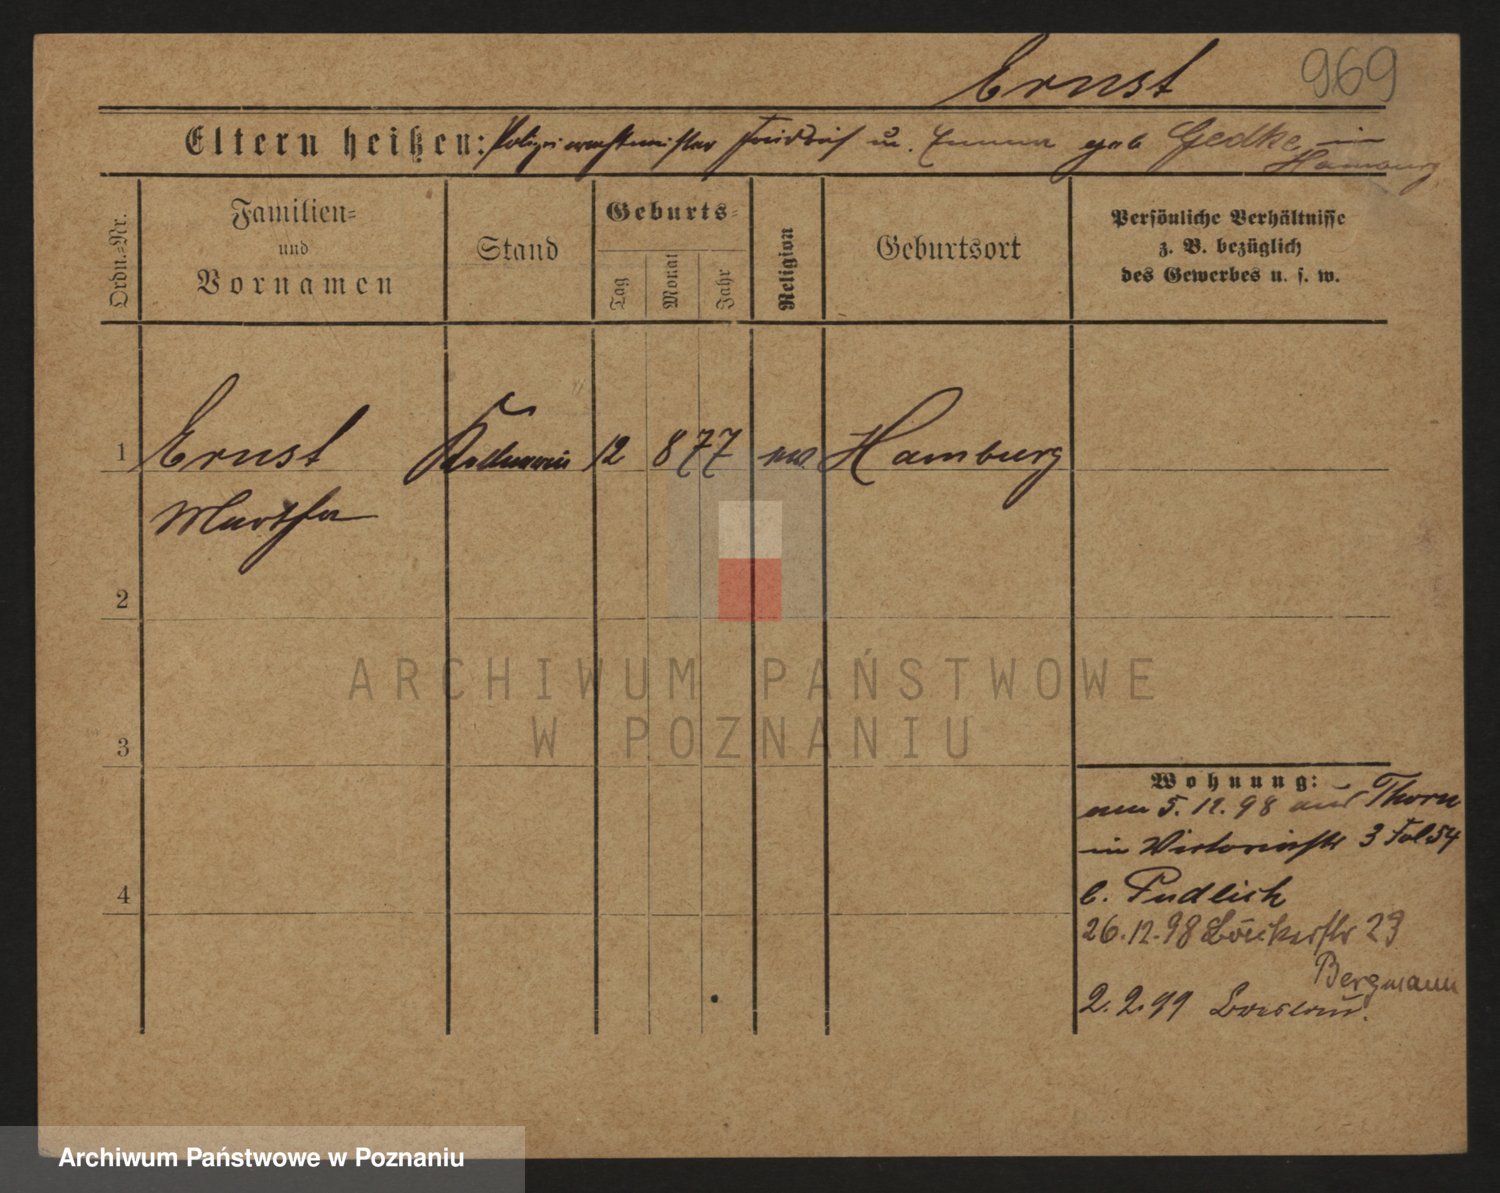 Ernst 969
Eltern heißen: Polizeiwachtmeister Friedrich u. Emma geb Gedke in
Hamburg
Ordn.-Nr.
Familien-
und
Vornamen
Stand
Geburts-
Tag
Monat
Jahr
Religion
Geburtsort
Persönliche Verhältnisse
z. B. bezüglich
des Gewerbes u. s. w.
1 Ernst Kellnerin 12 8 77 ev Hamburg
Martha
2
3
4
Wohnung:
am 5. 12. 98 aus Thorn
in Victoriastr 3 Fol 54
b. Pudlich
26.12.98 Bäckerstr 23
Bergmann
2. 2. 99 Breslau.
ARCHIWUM PAŃSTWOWE
W POZNANIU
Archiwum Państwowe w Poznaniu